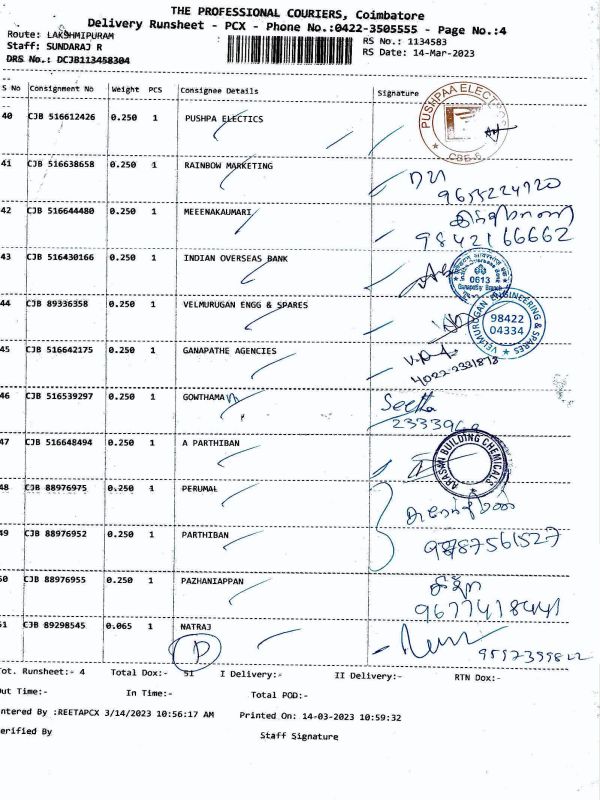 THE PROFESSIONAL COURIERS, Coimbatore
Delivery Runsheet - PCX - Phone No.:0422-3505555 - Page No.:4
Route: LAKSHMIPURAM
Staff: SUNDARAJ R
DRS No.: DCJB113458304
RS No.: 1134583
RS Date: 14-Mar-2023
S No Consignment No Weight PCS Consignee Details Signature
40 CJB 516612426 0.250 1 PUSHPA ELECTICS
PUSHPAA ELECTRICS
CBE-6
41 CJB 516638658 0.250 1 RAINBOW MARKETING
42 CJB 516644480 0.250 1 MEEENAKAUMARI
9842166662
43 CJB 516430166 0.250 1 INDIAN OVERSEAS BANK
0613
44 CJB 89336358 0.250 1 VELMURUGAN ENGG & SPARES
VELMURUGAN ENGINEERING & SPARES
98422
04334
45 CJB 516642175 0.250 1 GANAPATHE AGENCIES
46 CJB 516539297 0.250 1 GOWTHAMAN
Seetha
47 CJB 516648494 0.250 1 A PARTHIBAN
ARASAN BUILDING CHEMICALS
48 CJB 88976975 0.250 1 PERUMAL
49 CJB 88976952 0.250 1 PARTHIBAN
9787561527
50 CJB 88976955 0.250 1 PAZHANIAPPAN
51 CJB 89298545 0.065 1 NATRAJ
P
Tot. Runsheet:- 4 Total Dox:- 51 I Delivery:- II Delivery:- RTN Dox:-
Out Time:- In Time:- Total POD:-
Entered By :REETAPCX 3/14/2023 10:56:17 AM Printed On: 14-03-2023 10:59:32
Verified By Staff Signature